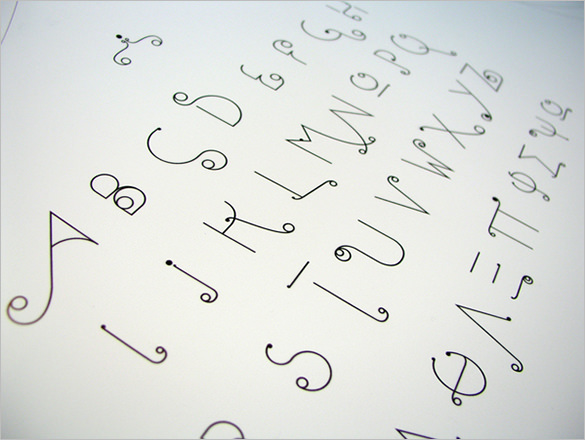 A B C D E F G H
I J K L M N O P Q
S T U V W X Y Z
Θ Λ Ξ Π Φ Σ Ψ Ω